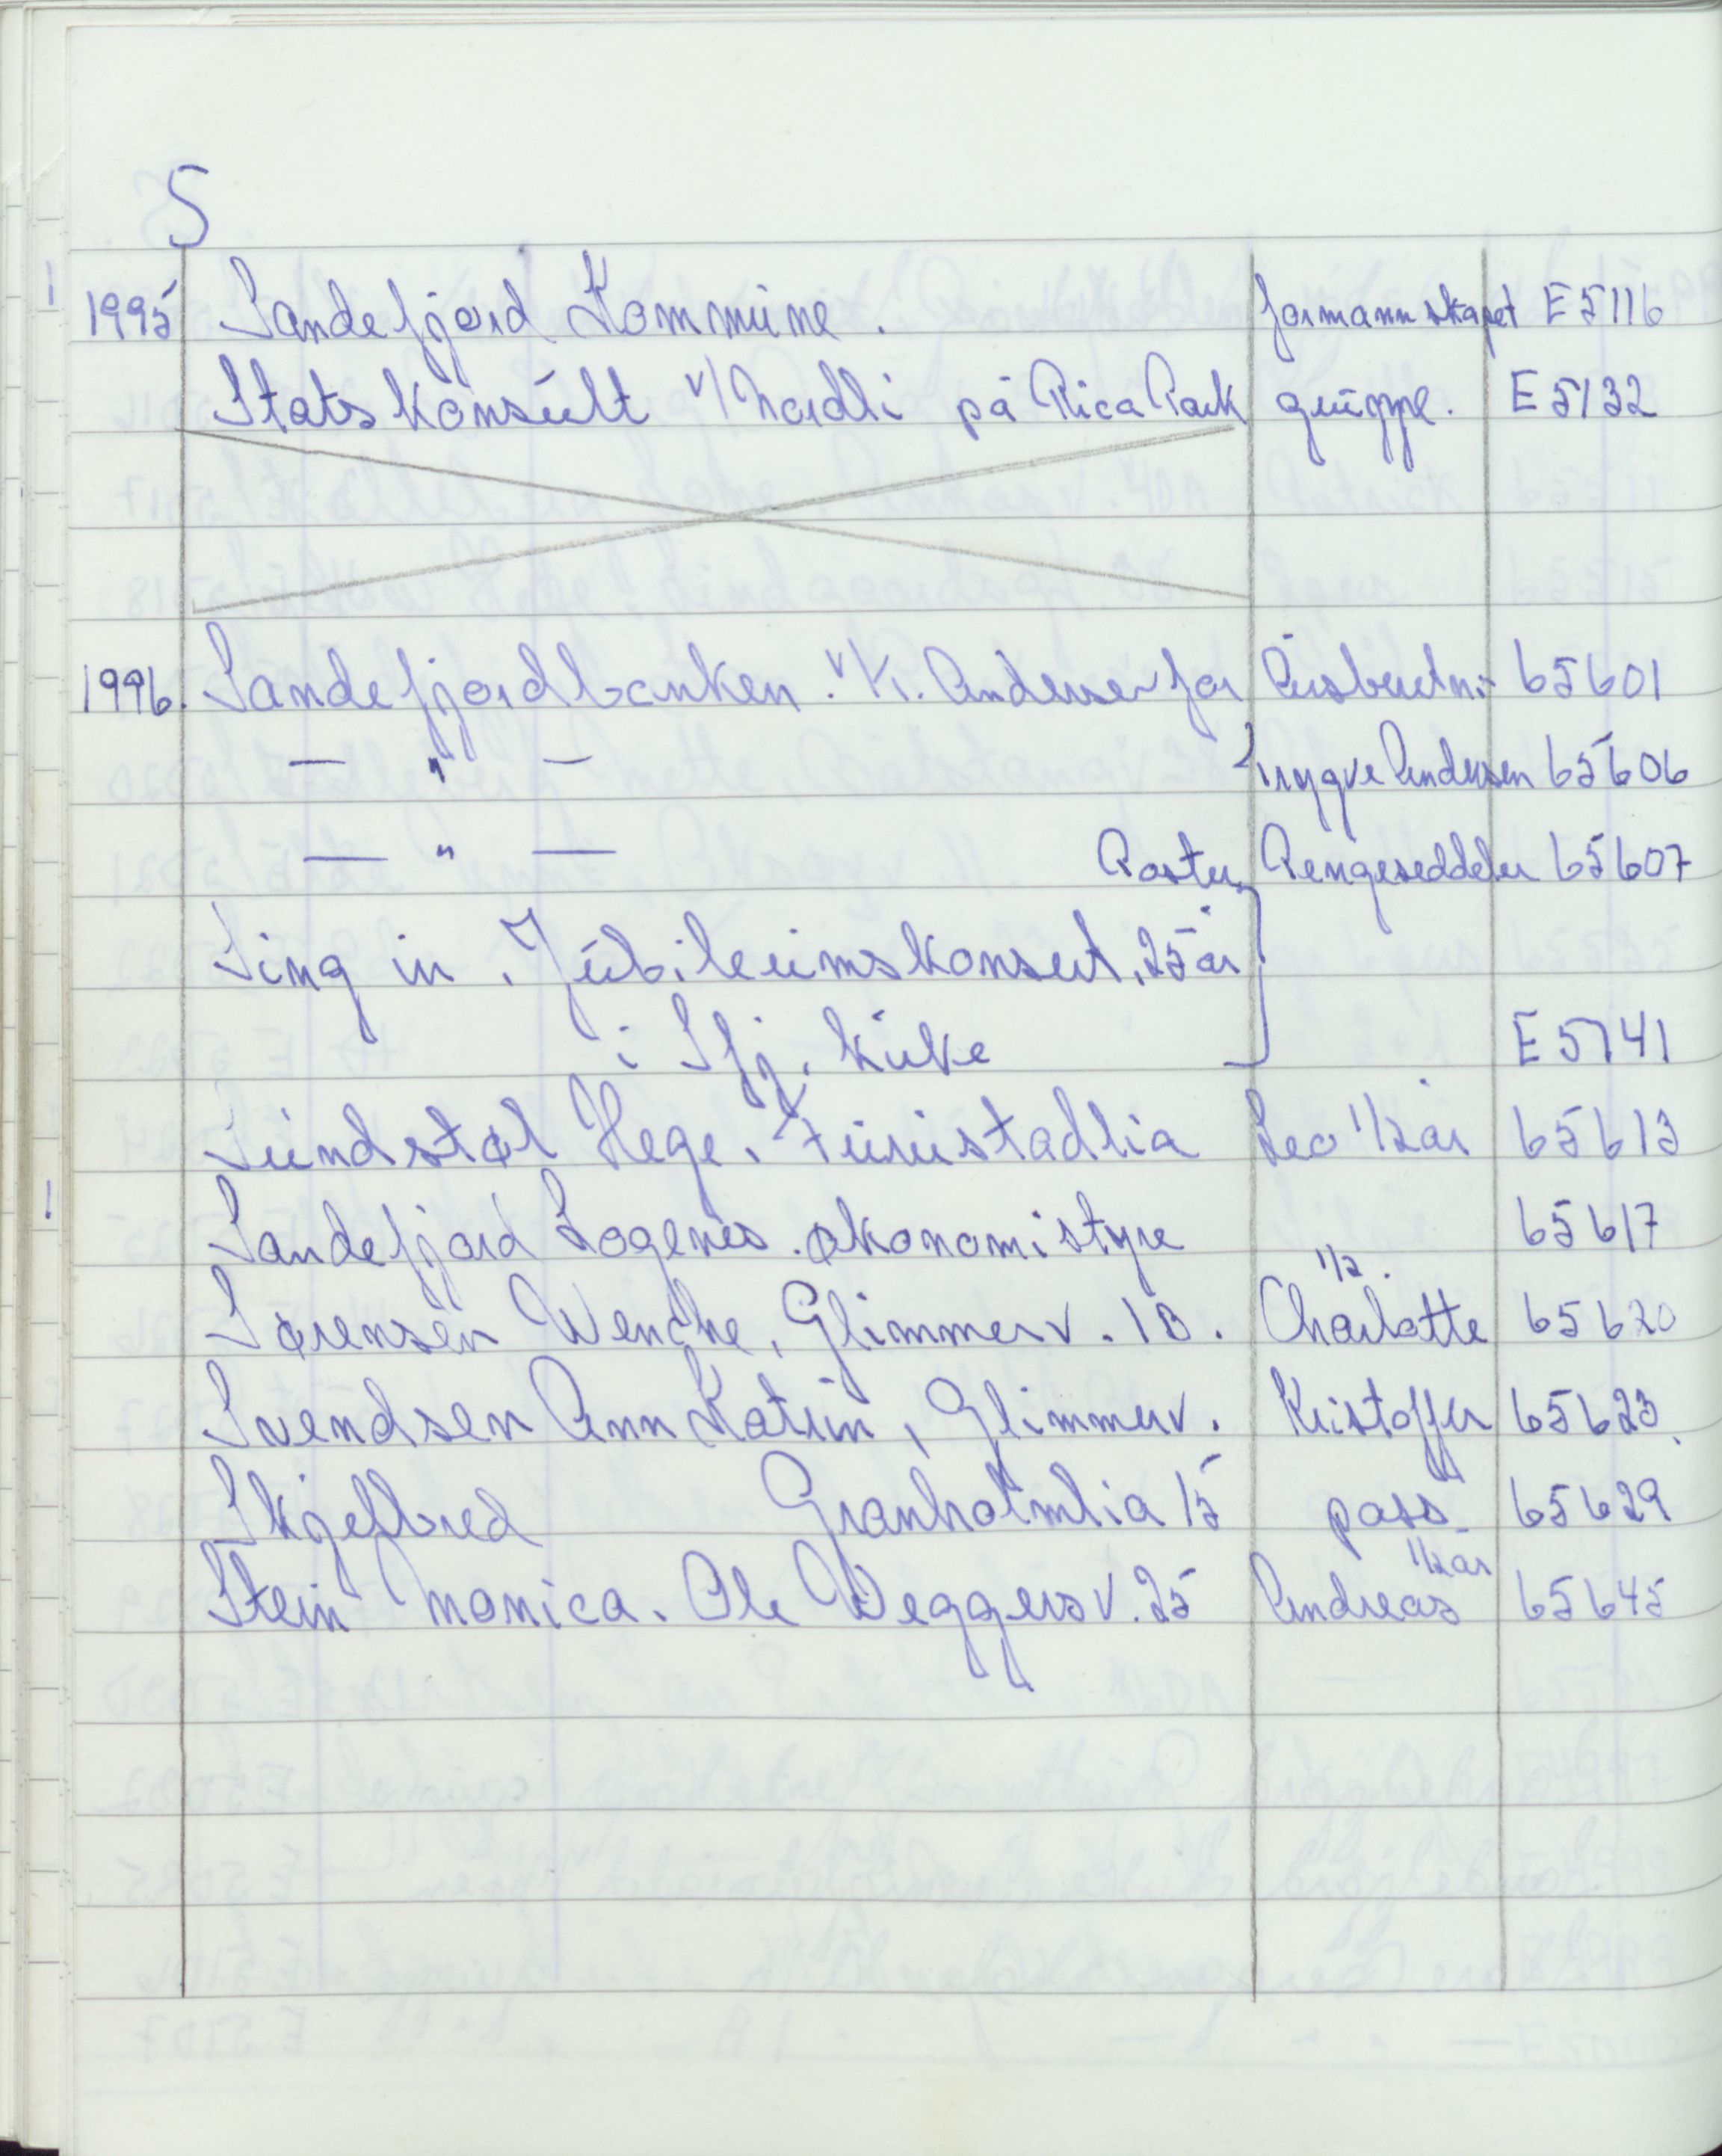 S
1995 Sandefjord Kommune. formannskapet E5116
Statskonsult v/Nordli på Rica Park gruppe. E5132
1996. Sandefjordbanken. v K. Andersen for Årsberetn. 65601
— " — Trygve Andersen 65606
— " — Poster, Pengeseddeler 65607
Sing in. Jubileumskonsert, 25 år
i Sfj. kirke E5741
Sundstøl Hege. Furustadlia Leo 1/2 år 65613
Sandefjord Logenes. økonomistyre 65617
1/2.
Sørensen Wenche, Glimmerv. 1B. Charlotte 65620
Svendsen Ann Katrin, Glimmerv. Kristoffer 65623.
Skjelbred Granholmlia 15 pass 65629
1/2 år
Stein Monica. Ole Weggersv. 25 Andreas 65645